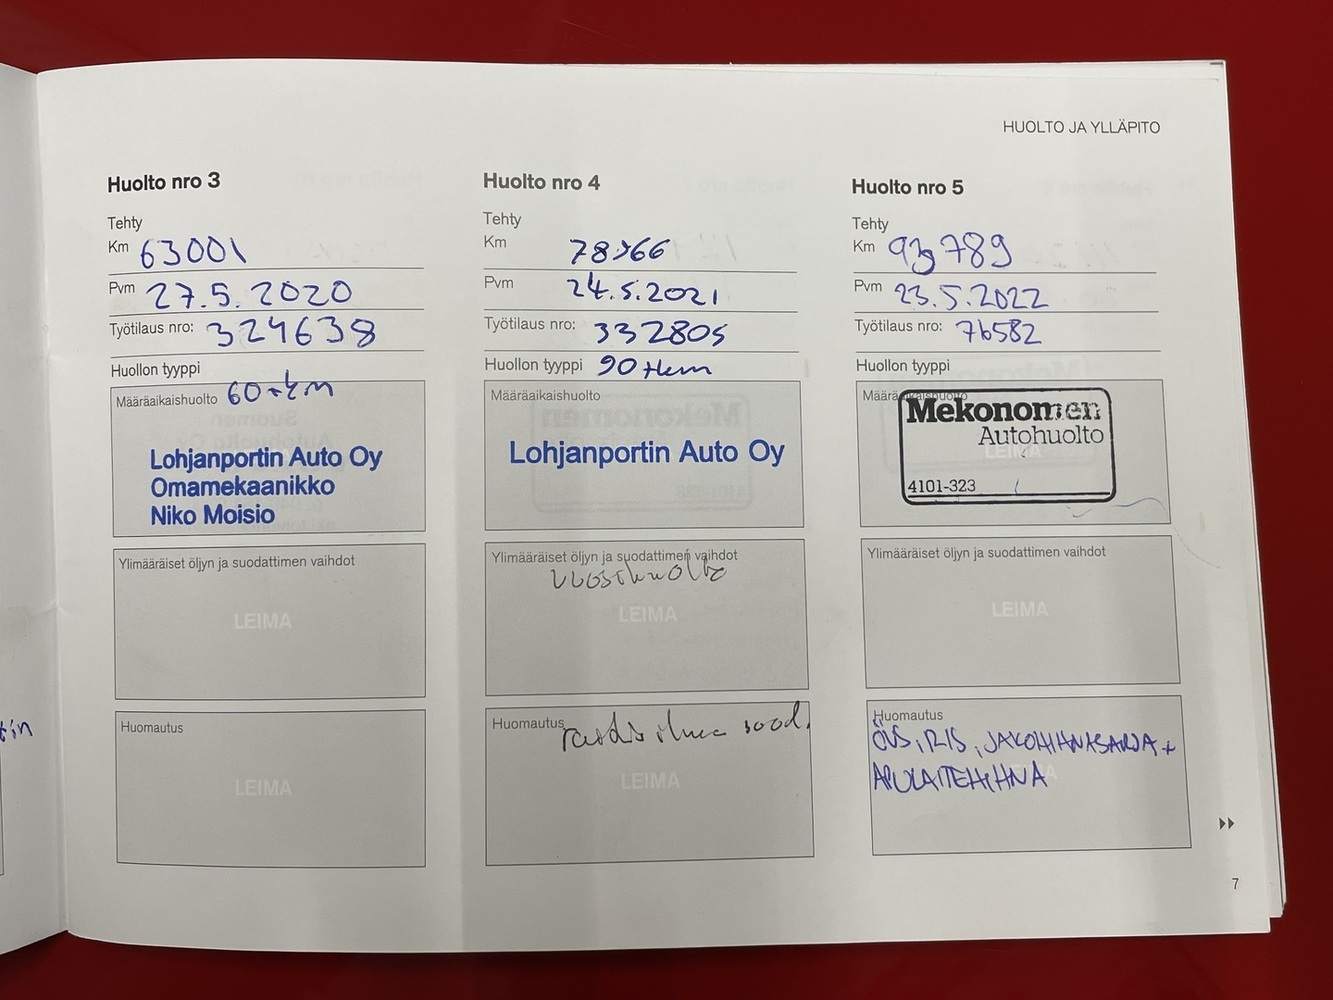 HUOLTO JA YLLÄPITO
Huolto nro 3
Tehty
Km 63001
Pvm 27.5.2020
Työtilaus nro: 324638
Huollon tyyppi
Määräaikaishuolto 60 tkm
Lohjanportin Auto Oy
Omamekaanikko
Niko Moisio
Ylimääräiset öljyn ja suodattimen vaihdot
LEIMA
Huomautus
LEIMA
Huolto nro 4
Tehty
Km
Pvm 24.5.2021
Työtilaus nro: 332805
Huollon tyyppi 90 tkm
Määräaikaishuolto
Lohjanportin Auto Oy
Ylimääräiset öljyn ja suodattimen vaihdot
vuosihuolto
LEIMA
Huomautus
raitis ilma suod.
LEIMA
Huolto nro 5
Tehty
Km 93789
Pvm 23.5.2022
Työtilaus nro: 76582
Huollon tyyppi
Määräaikaishuolto
Mekonomen
Autohuolto
LEIMA
4101-323
Ylimääräiset öljyn ja suodattimen vaihdot
LEIMA
Huomautus
ÖVS, RIS, JAKOHIHNASARJA +
APULAITEHIHNA
7